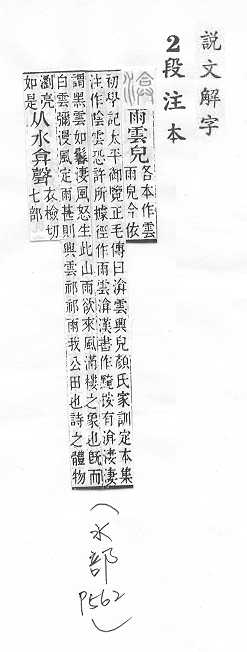 說文解字
2段注本
渰
雨雲皃
各本作雲
雨皃今依
初學記太平御覽正毛傳曰渰雲興皃顏氏家訓定本集
注作陰雲恐許所據徑作雨雲渰漢書作黤按有渰淒淒
謂黑雲如鬈淒風怒生此山雨欲來風滿樓之象也旣而
白雲彌漫風定雨甚則興雲祁祁雨我公田也詩之體物
瀏亮
如是
从水弇聲
衣檢切
七部
(水部 P562)